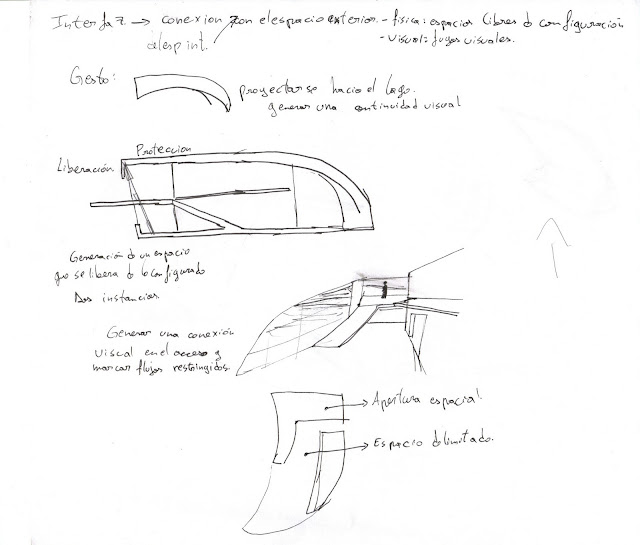 Interfaz → conexion con el espacio exterior. - fisica: espacios libres d configuración
al esp int. - visual: fugas visuales.
Gesto:
proyectarse hacia el lago.
generar una continuidad visual
Protección
Liberación
Generación d un espacio
que se libera d lo configurado
Dos instancias
Generar una conexión
visual en el acceso y
marcar flujos restringidos.
Apertura espacial.
Espacio dlimitado.